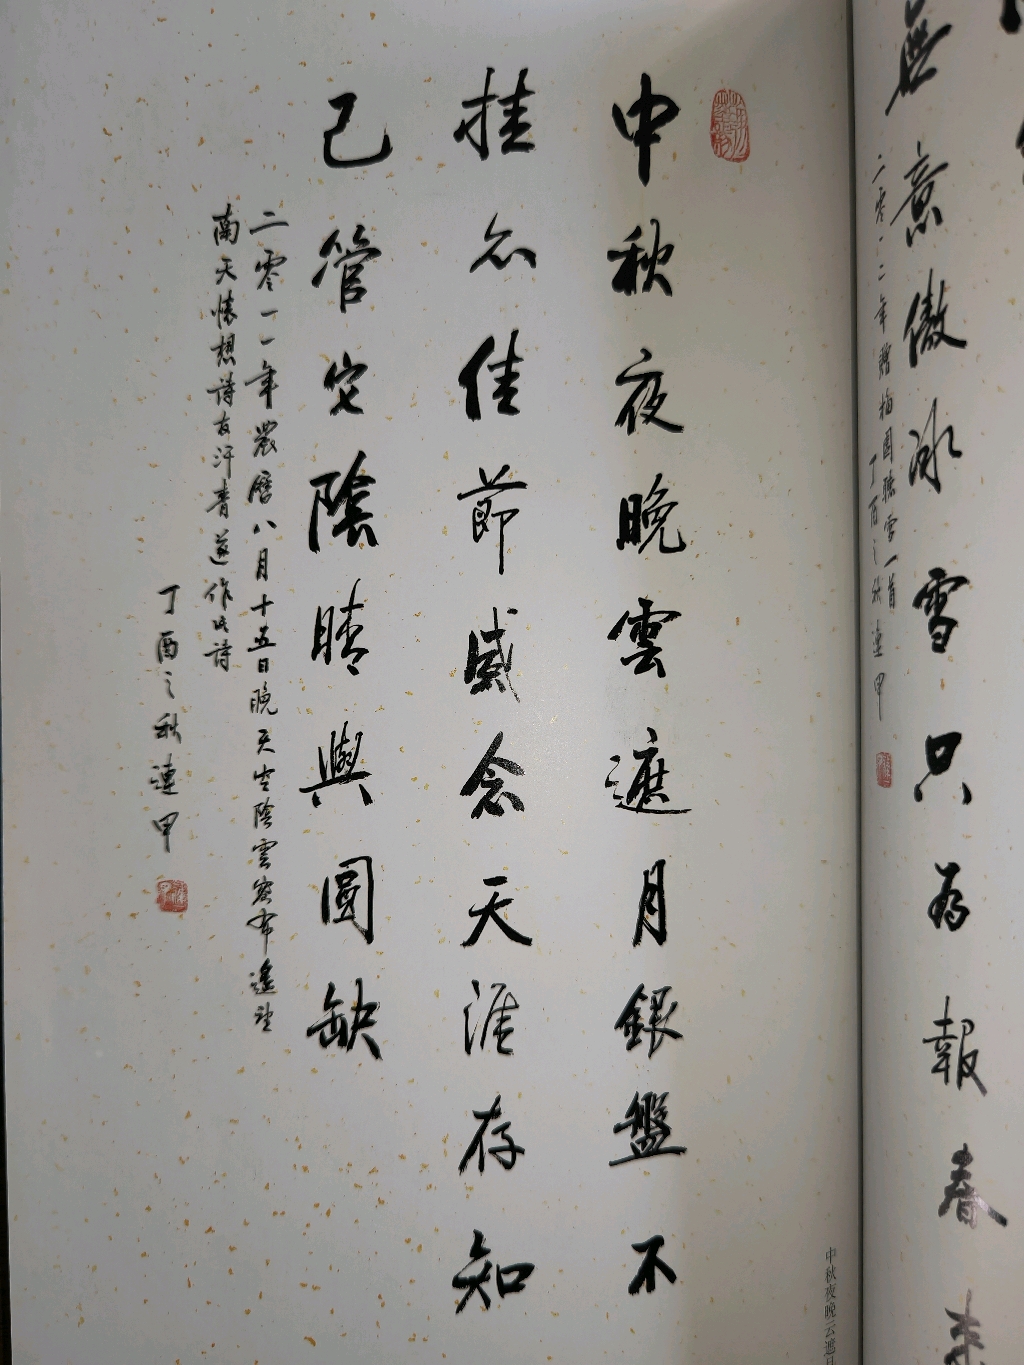 無意傲冰雪只為報春来
二零一二年贈梅園聽雪一首
丁酉之秋 連甲
中秋夜晚雲遮月銀盤不
挂亦佳節感念天涯存知
己管它陰晴與圓缺
二零一一年農曆八月十五日晚天空陰雲密布遙望
南天懷想詩友汗青遂作此詩
丁酉之秋連甲
中秋夜晚云遮月